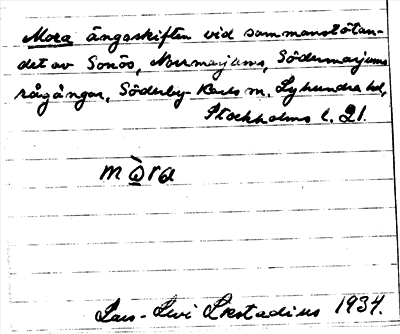 Mora ängsskiften vid sammanstötan-
det av Sonös, Norrmarjums, Södermarjums
rågångar, Söderby-Karls sn. Lyhundra hd,
Stockholms l. 21.
mòra
Lars-Levi Læstadius 1934.